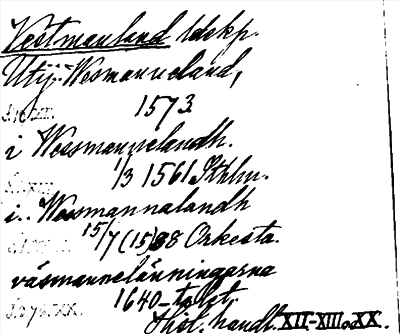 Vestmanland ldskp.
Utij Wesmanneland,
1573.
i Wessmannelandh.
1/3 1561 Sthlm.
i Wessmannalandh
15/7 (15)88 Orkesta.
väsmannelänningarna
1640-talet,
Hist. handl. XII-XIII o. XX.